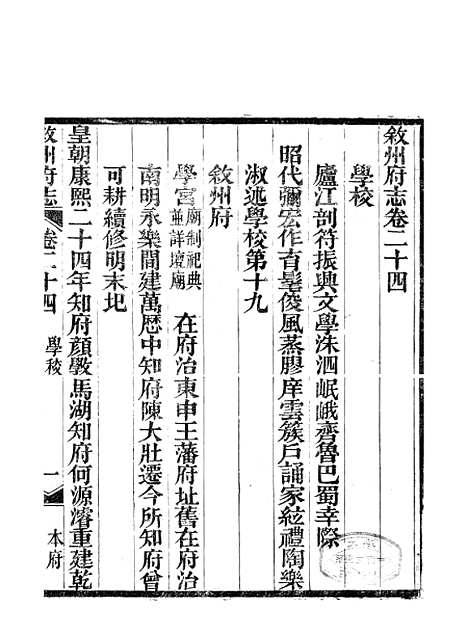 敘州府志卷二十四
學校
廬江剖符振興文學洙泗岷峨齊魯巴蜀幸際
昭代彌宏作育髦俊風蒸膠庠雲簇戶誦家絃禮陶樂
淑述學校第十九
敘州府
學宮廟制祀典並詳壇廟 在府治東申王藩府址舊在府治
南明永樂間建萬歷中知府陳大壯遷今所知府曾
可耕續修明末圮
皇朝康熙二十四年知府顏斆馬湖知府何源濬重建乾
敘州府志 卷二十四 學校 一 本府